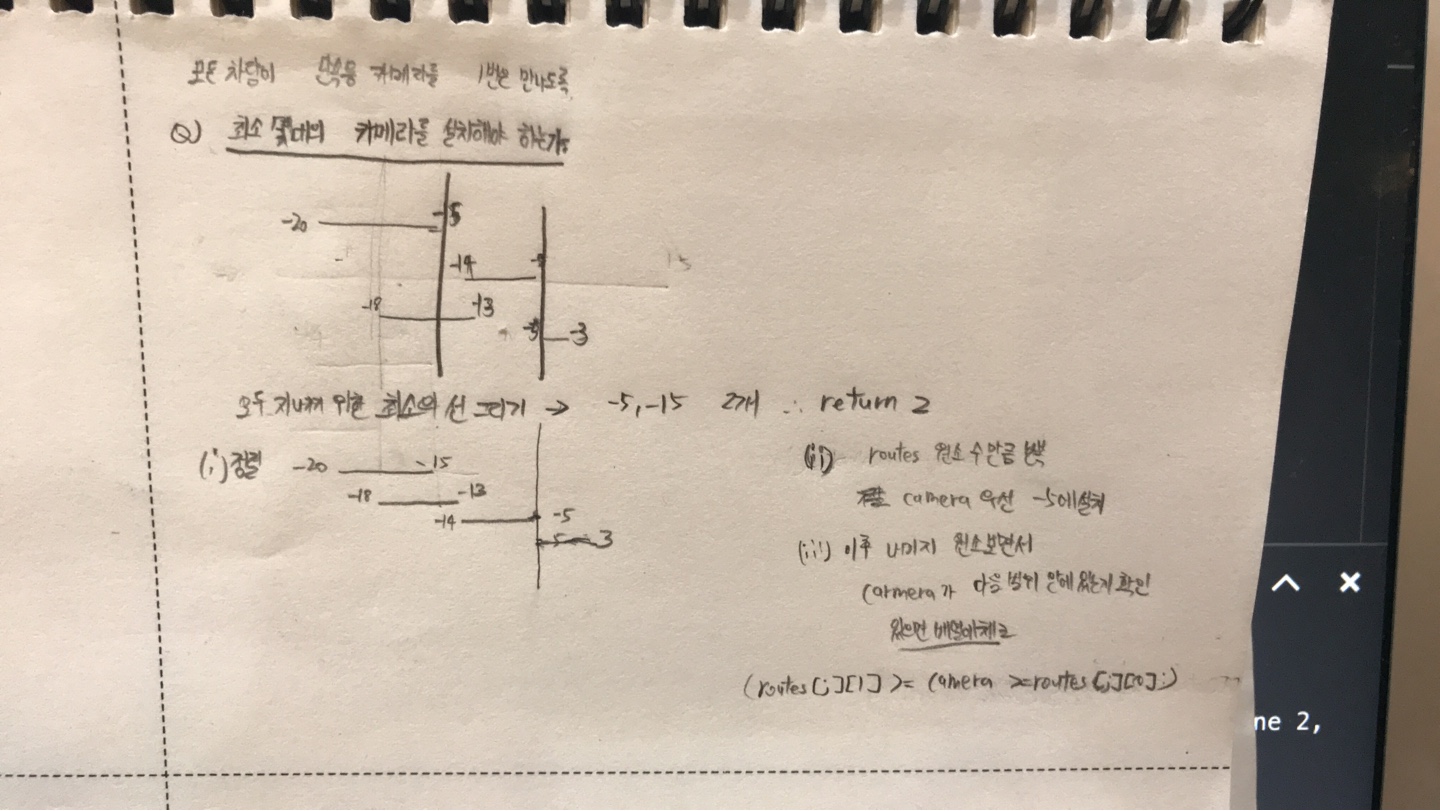 모든 차량이 단속용 카메라를 1번은 만나도록
Q) 최소 몇대의 카메라를 설치해야 하는가?
-20 -15
-14 -5
-18 -13
-5 -3
모두 지나기 위한 최소의 선 그리기 → -5, -15 2개 ∴ return 2
(i) 정렬 -20 -15
-18 -13
-14 -5
-5 -3
(ii) routes 원소 수만큼
camera 우선 -5에 설치
(iii) 이후 나머지 원소보면서
Carmera가 다음 범위 안에 있는지 확인
있으면 배열에 체크
(routes[j][1] >= Camera >= routes[j][0];)
ne 2,